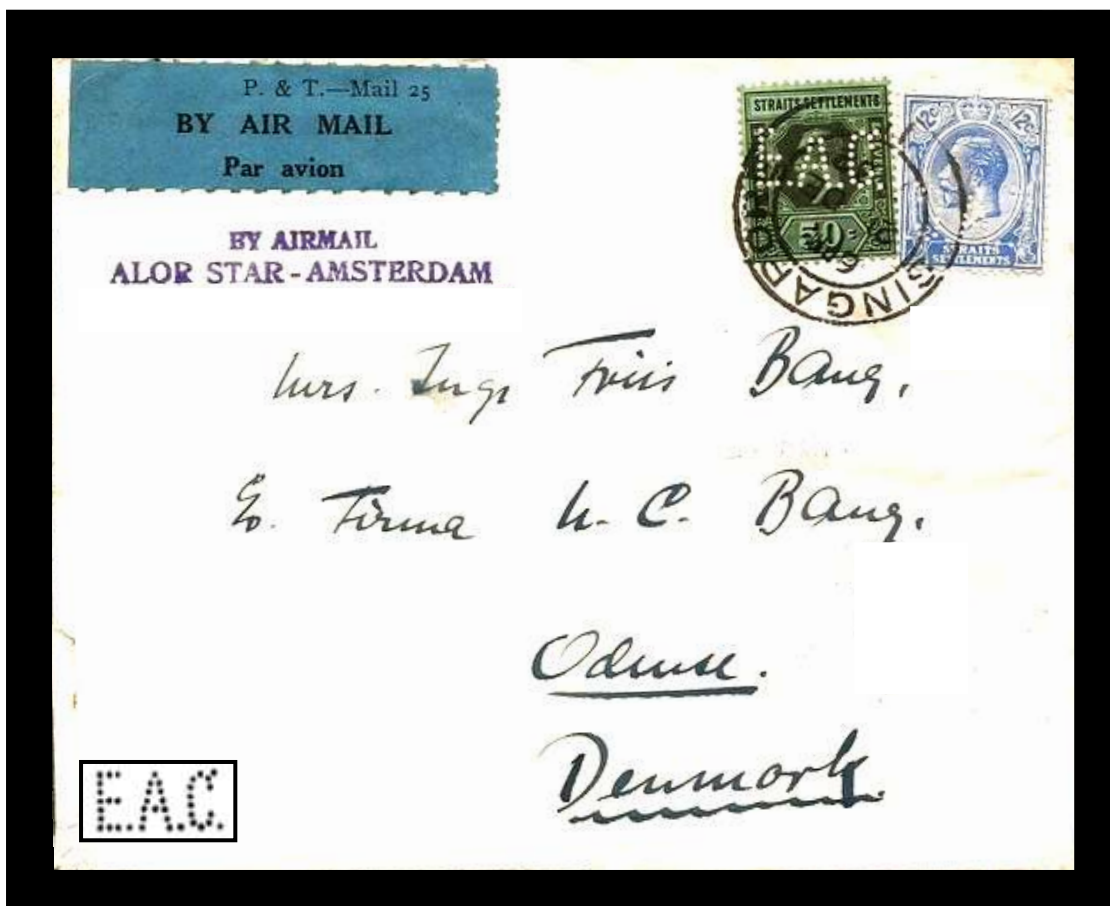 P. & T.—Mail 25
BY AIR MAIL
Par avion
BY AIRMAIL
ALOR STAR - AMSTERDAM
STRAITS SETTLEMENTS
E.A.C.
50 c
12c 12c
STRAITS
SETTLEMENTS
SINGAPORE
Mrs. Inge Friis Bang,
Firma Bang,
Odense.
Denmark
E.A.C.